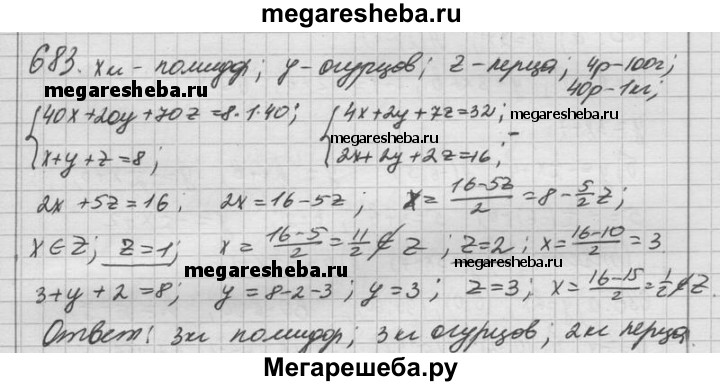 megaresheba.ru
683. x кг - помидор; y - огурцов; z - перца; 4р-100г;
megaresheba.ru 40р-1кг;
{40x+20y+70z=8·1·40; {4x+2y+7z=32; megaresheba.ru
x+y+z=8; megaresheba.ru 2x+2y+2z=16;
2x+5z=16. 2x=16-5z; x=(16-5z)/2=8-5/2z;
x∈Z; z=1; x=(16-5)/2=11/2∉Z; z=2; x=(16-10)/2=3.
megaresheba.ru megaresheba.ru
3+y+2=8; y=8-2-3; y=3; z=3; x=(16-15)/2=1/2∉Z.
Ответ: 3кг помидор; 3кг огурцов; 2кг перца.
Мегарешеба.ру